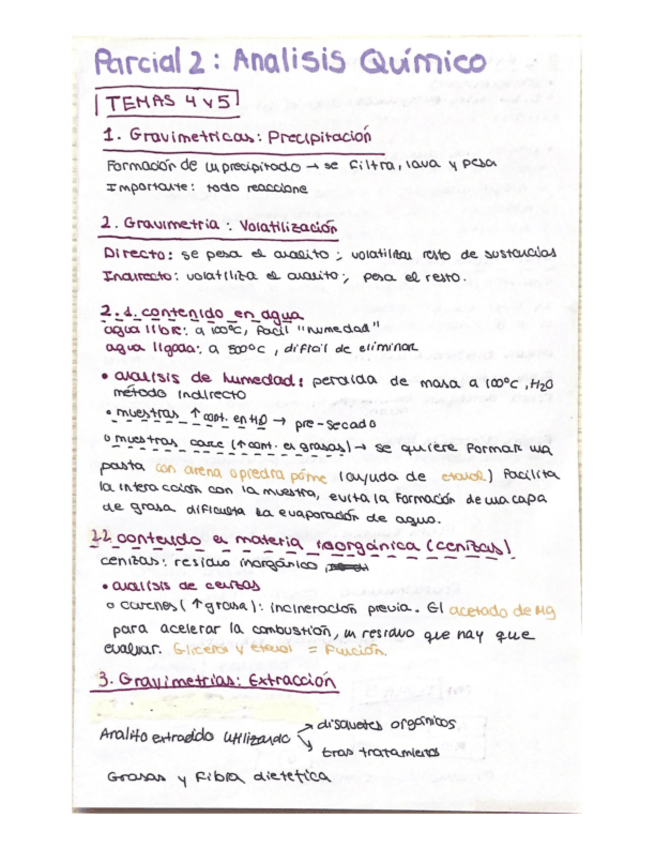 Parcial 2: Analisis Químico
TEMAS 4 y 5
1. Gravimetricas: Precipitación
Formación de un precipitado → se filtra, lava y pesa
Importante: todo reaccione
2. Gravimetria: Volatilización
Directo: se pesa el analito; volatiliza resto de sustancias
Indirecto: volatiliza el analito; pesa el resto.
2.1. contenido en agua
agua libre: a 100ºC, facil "humedad"
agua ligada: a 500ºC, dificil de eliminar
• analisis de humedad: perdida de masa a 100ºC, H2O
método indirecto
• muestras ↑ cont. en H2O → pre-secado
o muestras carne (↑ cont. en grasas) → se quiere formar una
pasta con arena o piedra pómez (ayuda de etanol) facilita
la interacción con la muestra, evita la formación de una capa
de grasa dificulta la evaporación de agua.
2.2 contenido en materia inorgánica (cenizas)
cenizas: residuo inorgánico
• analisis de cenizas
o carnes (↑ grasa): incineración previa. El acetado de Mg
para acelerar la combustión, un residuo que hay que
evaluar. Glicerol y etanol = Función.
3. Gravimetrias: Extracción
Analito extraído utilizando → disolventes orgánicos
→ tras tratamiento
Grasas y Fibra dietetica